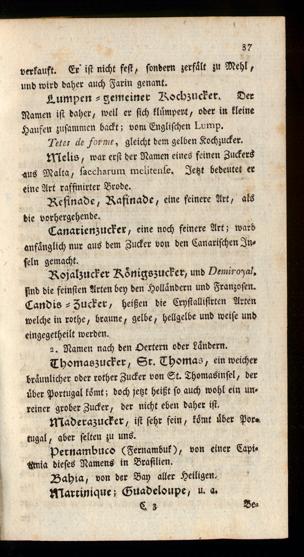 37
verkauft. Er ist nicht fest, sondern zerfält zu Mehl,
und wird daher auch Farin genant.
Lumpen-gemeiner Kochzucker. Der
Namen ist daher, weil er sich klümpert, oder in kleine
Haufen zusammen backt; vom Englischen Lump.
Tetes de forme, gleicht dem gelben Kochzucker.
Melis, war erst der Namen eines feinen Zuckers
aus Malta, saccharum melitense. Jetzt bedeutet er
eine Art raffinirter Brode.
Refinade, Rafinade, eine feinere Art, als
die vorhergehende.
Canarienzucker, eine noch feinere Art; ward
anfänglich nur aus dem Zucker von den Canarischen In-
seln gemacht.
Rojalzucker Königszucker, und Demiroyal,
sind die feinsten Arten bey den Holländern und Franzosen.
Candis-Zucker, heißen die Crystallisirten Arten
welche in rothe, braune, gelbe, hellgelbe und weise und
eingegetheilt werden.
2. Namen nach den Oertern oder Ländern.
Thomaszucker, St. Thomas, ein weicher
bräunlicher oder rother Zucker von St. Thomasinsel, der
über Portugal kömt; doch jetzt heißt so auch wohl ein un-
reiner grober Zucker, der nicht eben daher ist.
Maderazucker, ist sehr fein, kömt über Por-
tugal, aber selten zu uns.
Pernambuco (Fernambuk), von einer Capi-
tania dieses Namens in Brasilien.
Bahia, von der Bay aller Heiligen.
Martinique; Guadeloupe, u. a.
C 3 Be-